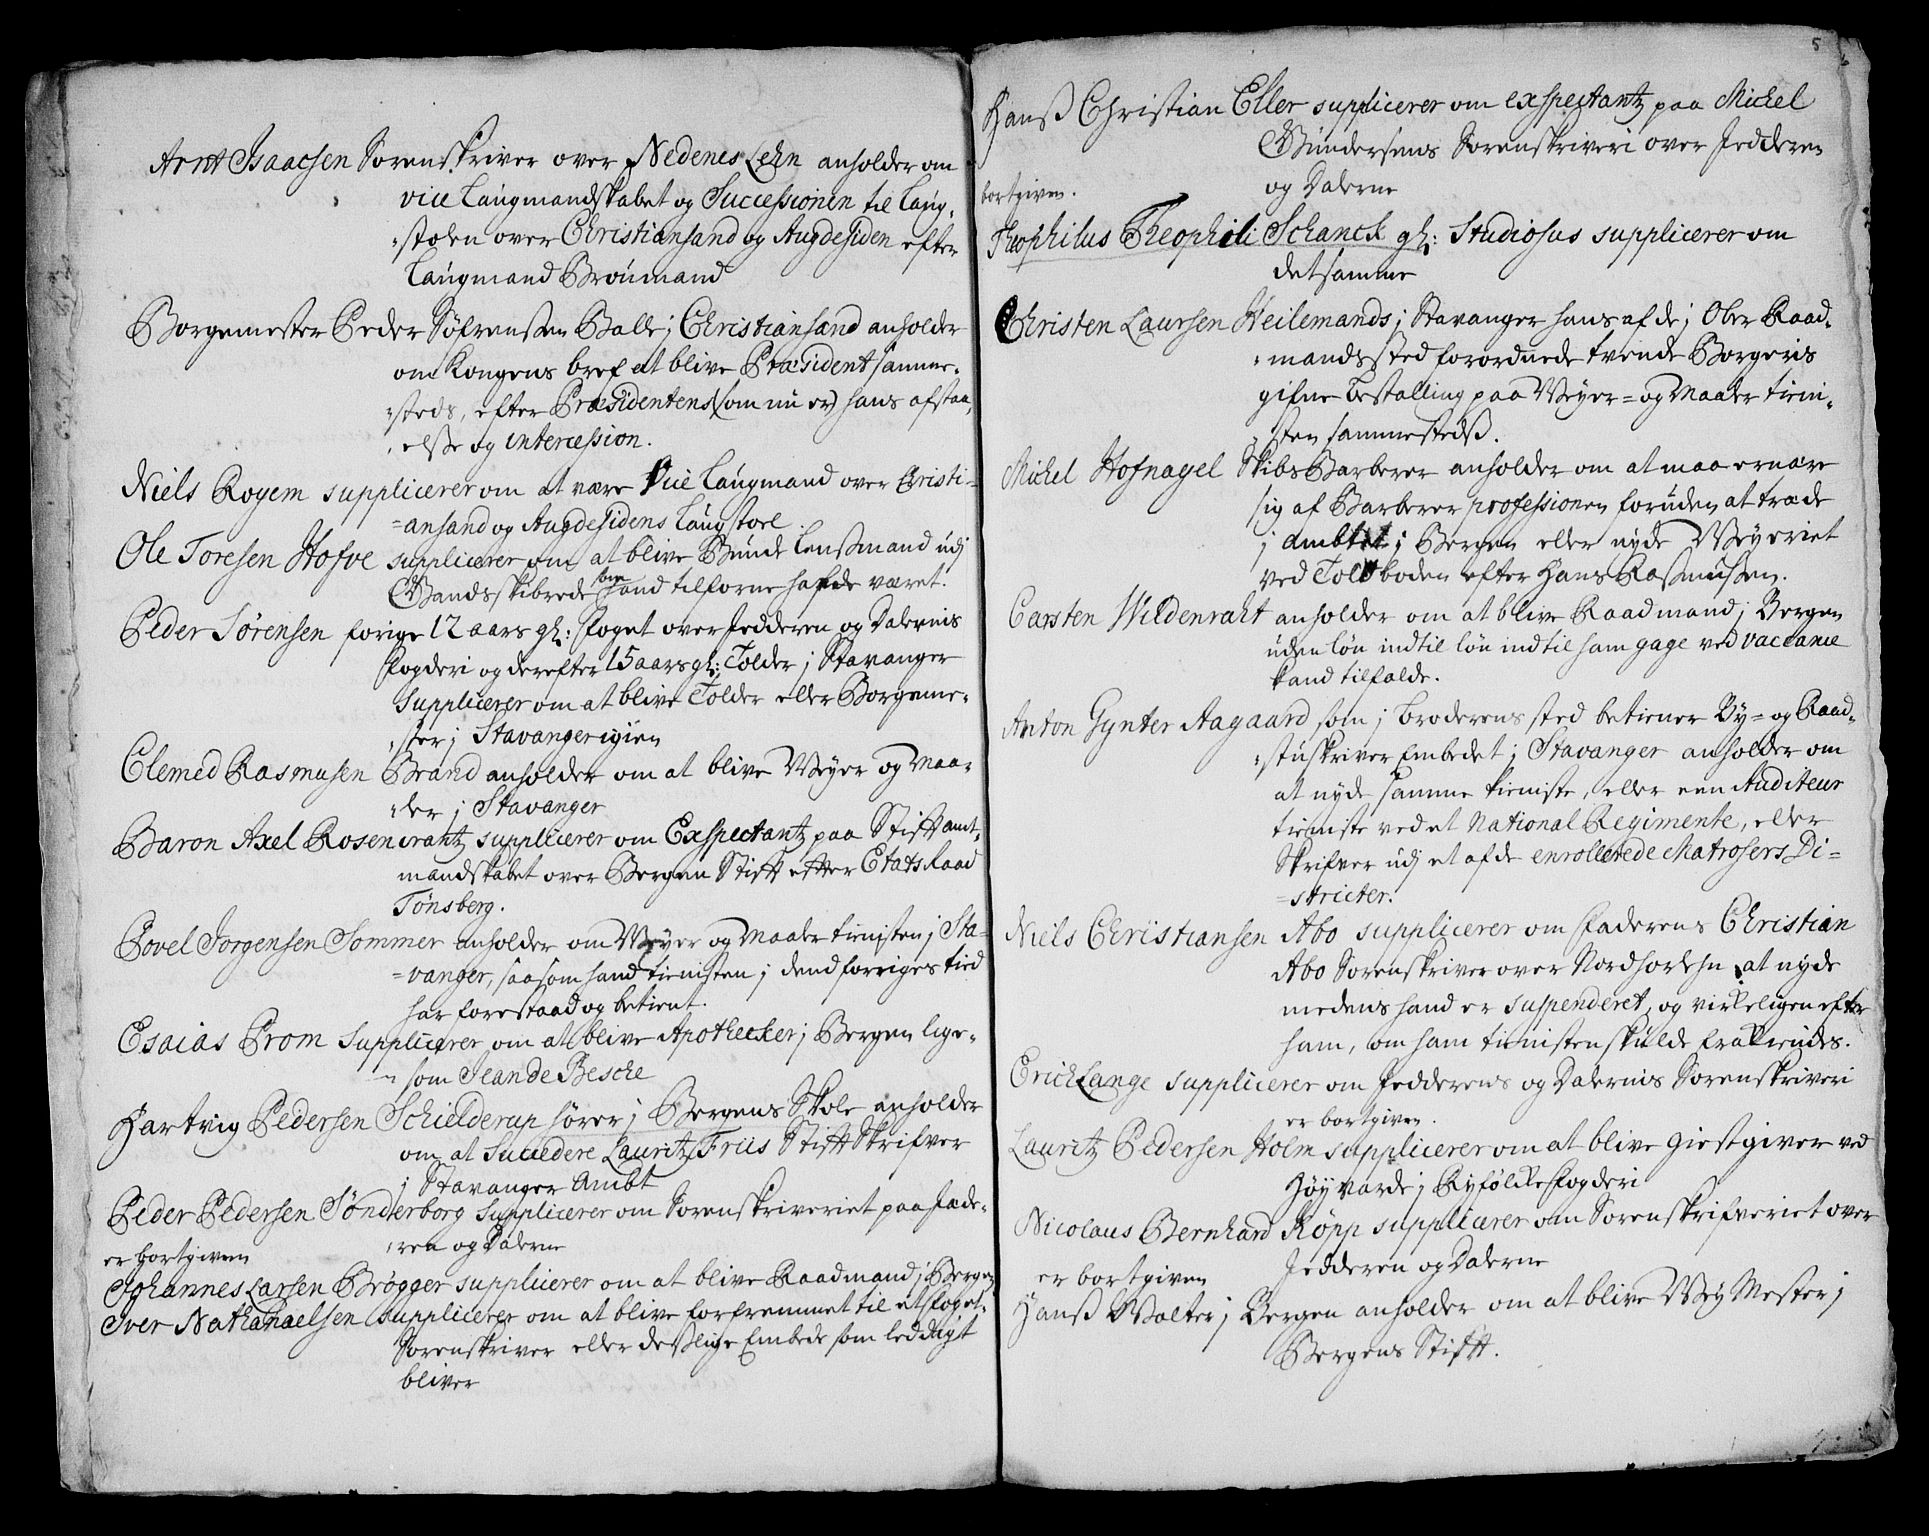 Arnt Isaacsen Sorenskriver over Nedenes Lehn anholder om
vice Laugmandskabet og Successionen til Laug-
stolen over Christiansand og Augdesiden efter
Laugmand Broumand
Borgemester Peder Söfrensen Balle i Christiansand anholder
om Kongens bref at blive Præsident samme-
steds, efter Præsidentens (som nu er) hans afstaa-
else og intercession.
Niels Royem supplicerer om at være Vice Laugmand over Christi-
ansand og Augdesidens Laugstoel.
Ole Toresen Hofve supplicerer om at blive Bunde Lensmand udj
Gandsskibrede som hand tilforne hafde været.
Peder Sørensen forige 12 aars gl: Foget over Jedderen og Dalernis
Fogderi og derefter 15 aars gl: Tolder i Stavanger
supplicerer om at blive Tolder eller Borgeme-
ster i Stavanger igien
Clemed Rasmusen Brand anholder om at blive Weyer og Maa-
ler i Stavanger
Baron Axel Rosencrantz supplicerer om Exspectantz paa Stiftamt-
mandskabet over Bergen Stift efter Etats Raad
Tönsberg.
Povel Jorgensen Sommer anholder om Weyer og Maaler tienisten i Sta-
vanger, saasom hand tienisten i dend forriges tied
har forestaad og betient.
Esaias Prom supplicerer om at blive Apothecker i Bergen lige-
som Jean de Besche
Hartvig Pedersen Schielderup hører i Bergens Skole anholder
om at succedere Lauritz Friis StiftSkrifver
i Stavanger Ambt
Peder Pedersen Sönderborg supplicerer om Sorenskriveriet paa Jæde-
ren og Dalerne
er bortgiven
Johannes Larsen Brögger supplicerer om at blive Raadmand i Bergen
Iver Nathanaelsen supplicerer om at blive forfremmet til et foget-
Sorenskriver eller deslige Embede som leddigt
bliver
5
Hanß Christian Eller supplicerer om exspectantz paa Michel
Gundersens Sorenskriveri over Jedderen
og Dalerne
bortgiven.
Theophilus Theophili Schanck gl: Studiosus supplicerer om
det samme
Christen Laursen Heilemands i Stavanger hans af de i Ober Raad-
mands sted forordnede tvende Borgeris
gifne bestalling paa Weyer= og Maaler tieni-
sten sammestedß.
Michel Hofnagel SkibsBarberer anholder om at maa ernære
sig af Barberer professionen foruden at træde
i ambtet i Bergen eller nyde Weyeriet
ved Tolboden efter Hans Rasmussen.
Carsten Wildenraht anholder om at blive Raadmand i Bergen
uden løn indtil løn indtil ham gage ved vaccance
kand tilfalde.
Anton Gynter Aagaard som i broderens sted betiener By= og Raad-
stuskriver Embedet i Stavanger anholder om
at nyde samme tieniste, eller een Auditeur
tieniste ved et National Regimente, eller
Skrifver udj et af de enrollerede Matrosers Di-
stricter.
Niels Christiansen Abo supplicerer om Faderens Christian
Abo Sorenskriver over Nordhorlehn at nyde
medens hand er suspenderet, og virkeligen efter
ham, om ham tienisten skulde frakiendes.
Erich Lange supplicerer om Jedderens og Dalernis Sorenskriveri
er bortgiven.
Lauritz Pedersen Holm supplicerer om at blive giestgiver ved
Höyvarde i Ryfölke Fogderi
Nicolaus Bernhard Köpp supplicerer om Sorenskrifveriet over
Jedderen og Dalerne
er bortgiven
Hanß Wolter i Bergen anholder om at blive WeyMester i
Bergens Stift.